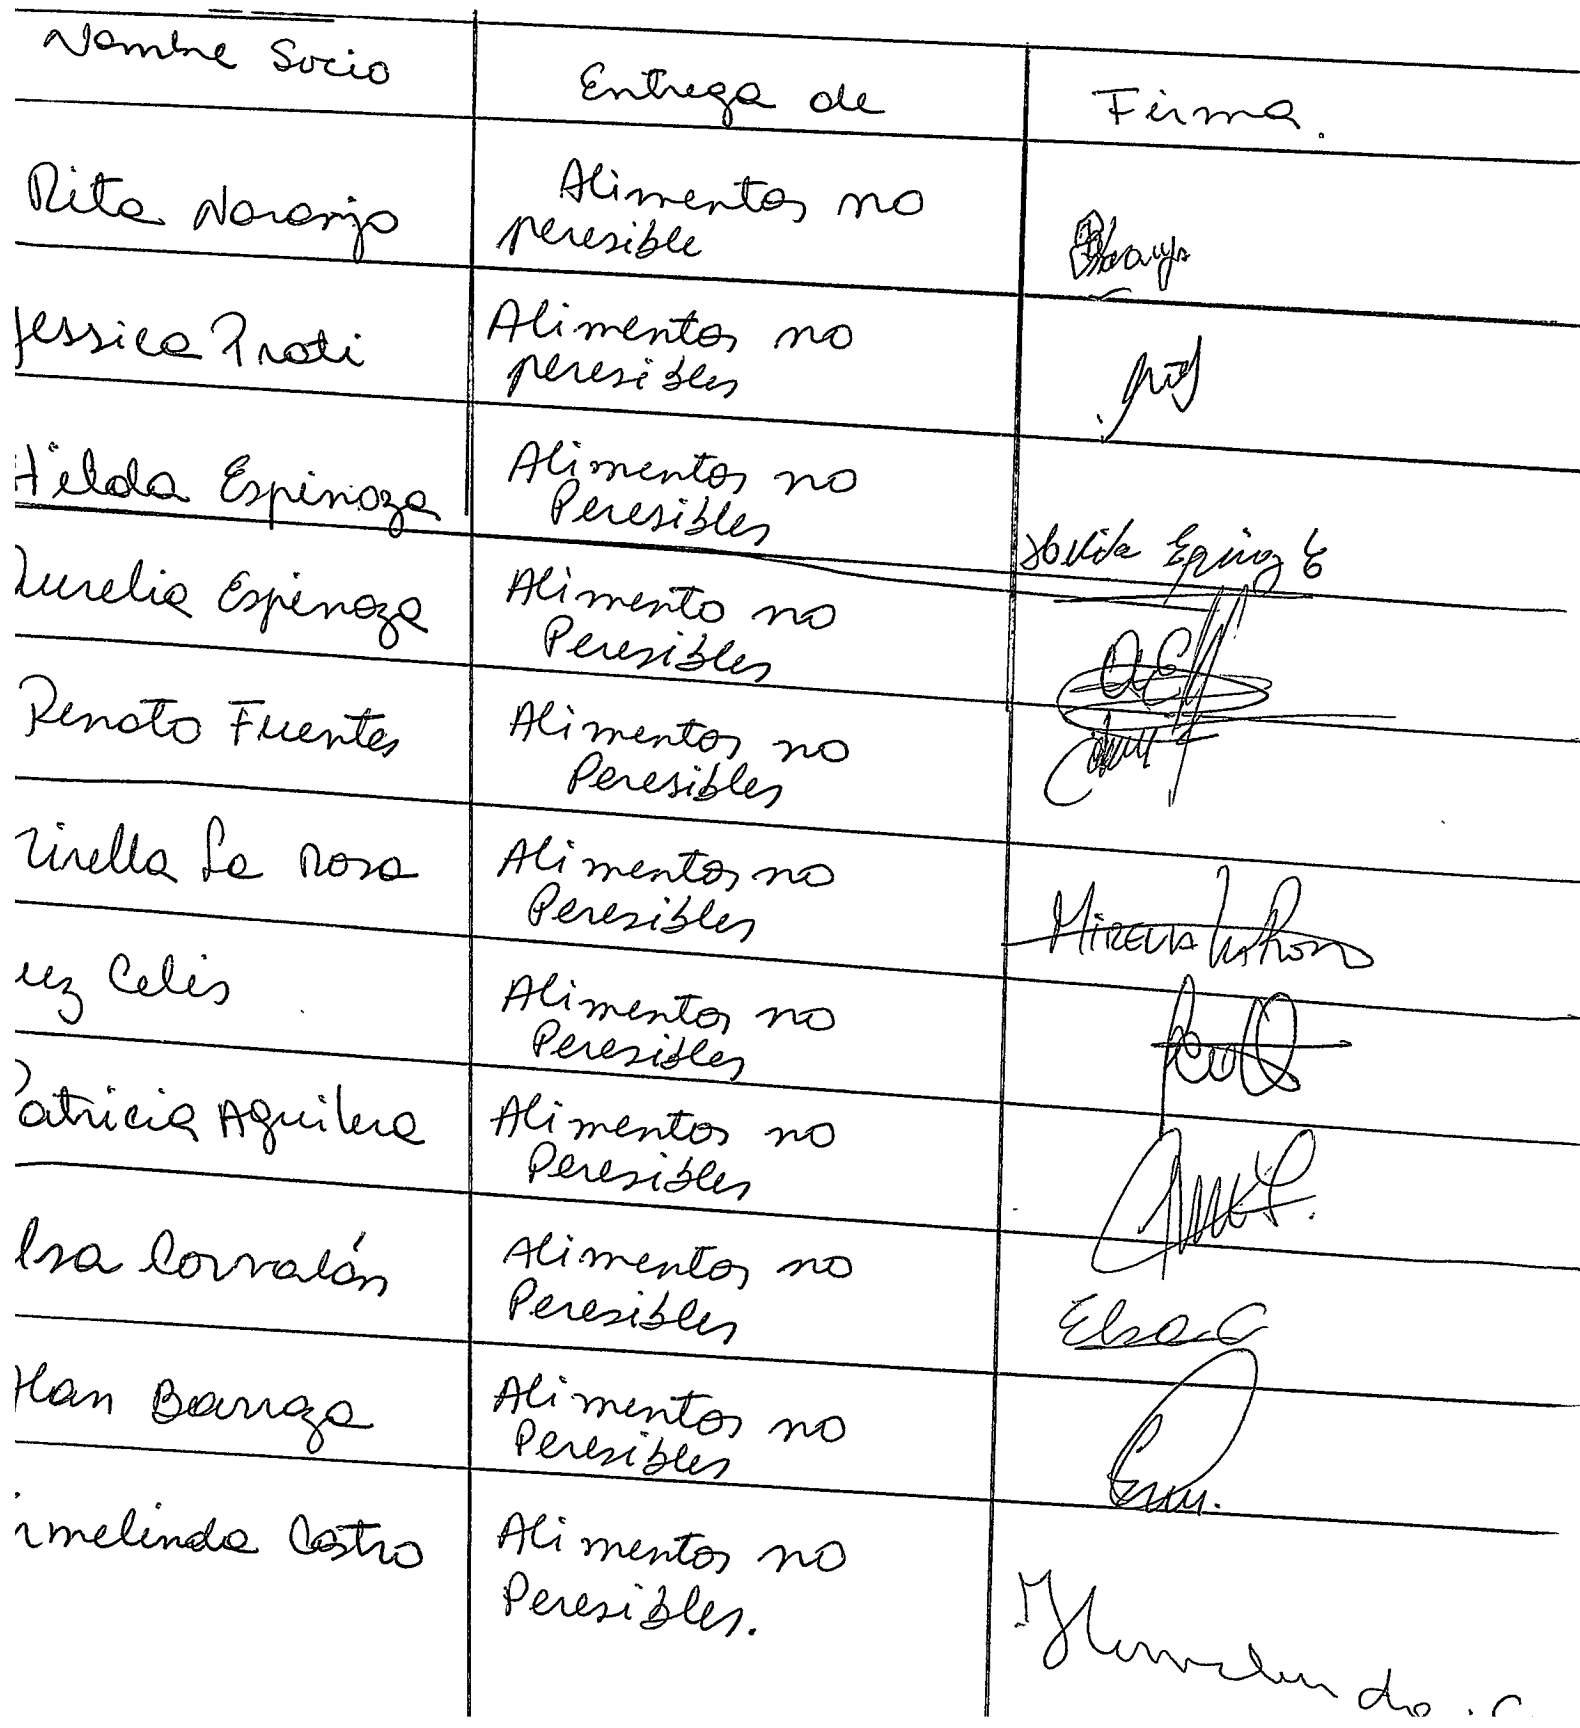 Nombre Socio
Entrega de
Firma.
Rita Naranjo
Alimentos no
peresible
Jessica Prati
Alimentos no
peresibles
Hilda Espinoza
Alimentos no
Peresibles
Aurelia Espinoza
Alimento no
Peresibles
Renato Fuentes
Alimentos no
Peresibles
irella La Rosa
Alimentos no
Peresibles
Mirella La Rosa
uz Celis
Alimentos no
Peresibles
Patricia Aguilera
Alimentos no
Peresibles
lsa Corvalán
Alimentos no
Peresibles
Elsa C
lan Barraza
Alimentos no
Peresibles
rmelinda Castro
Alimentos no
Peresibles.